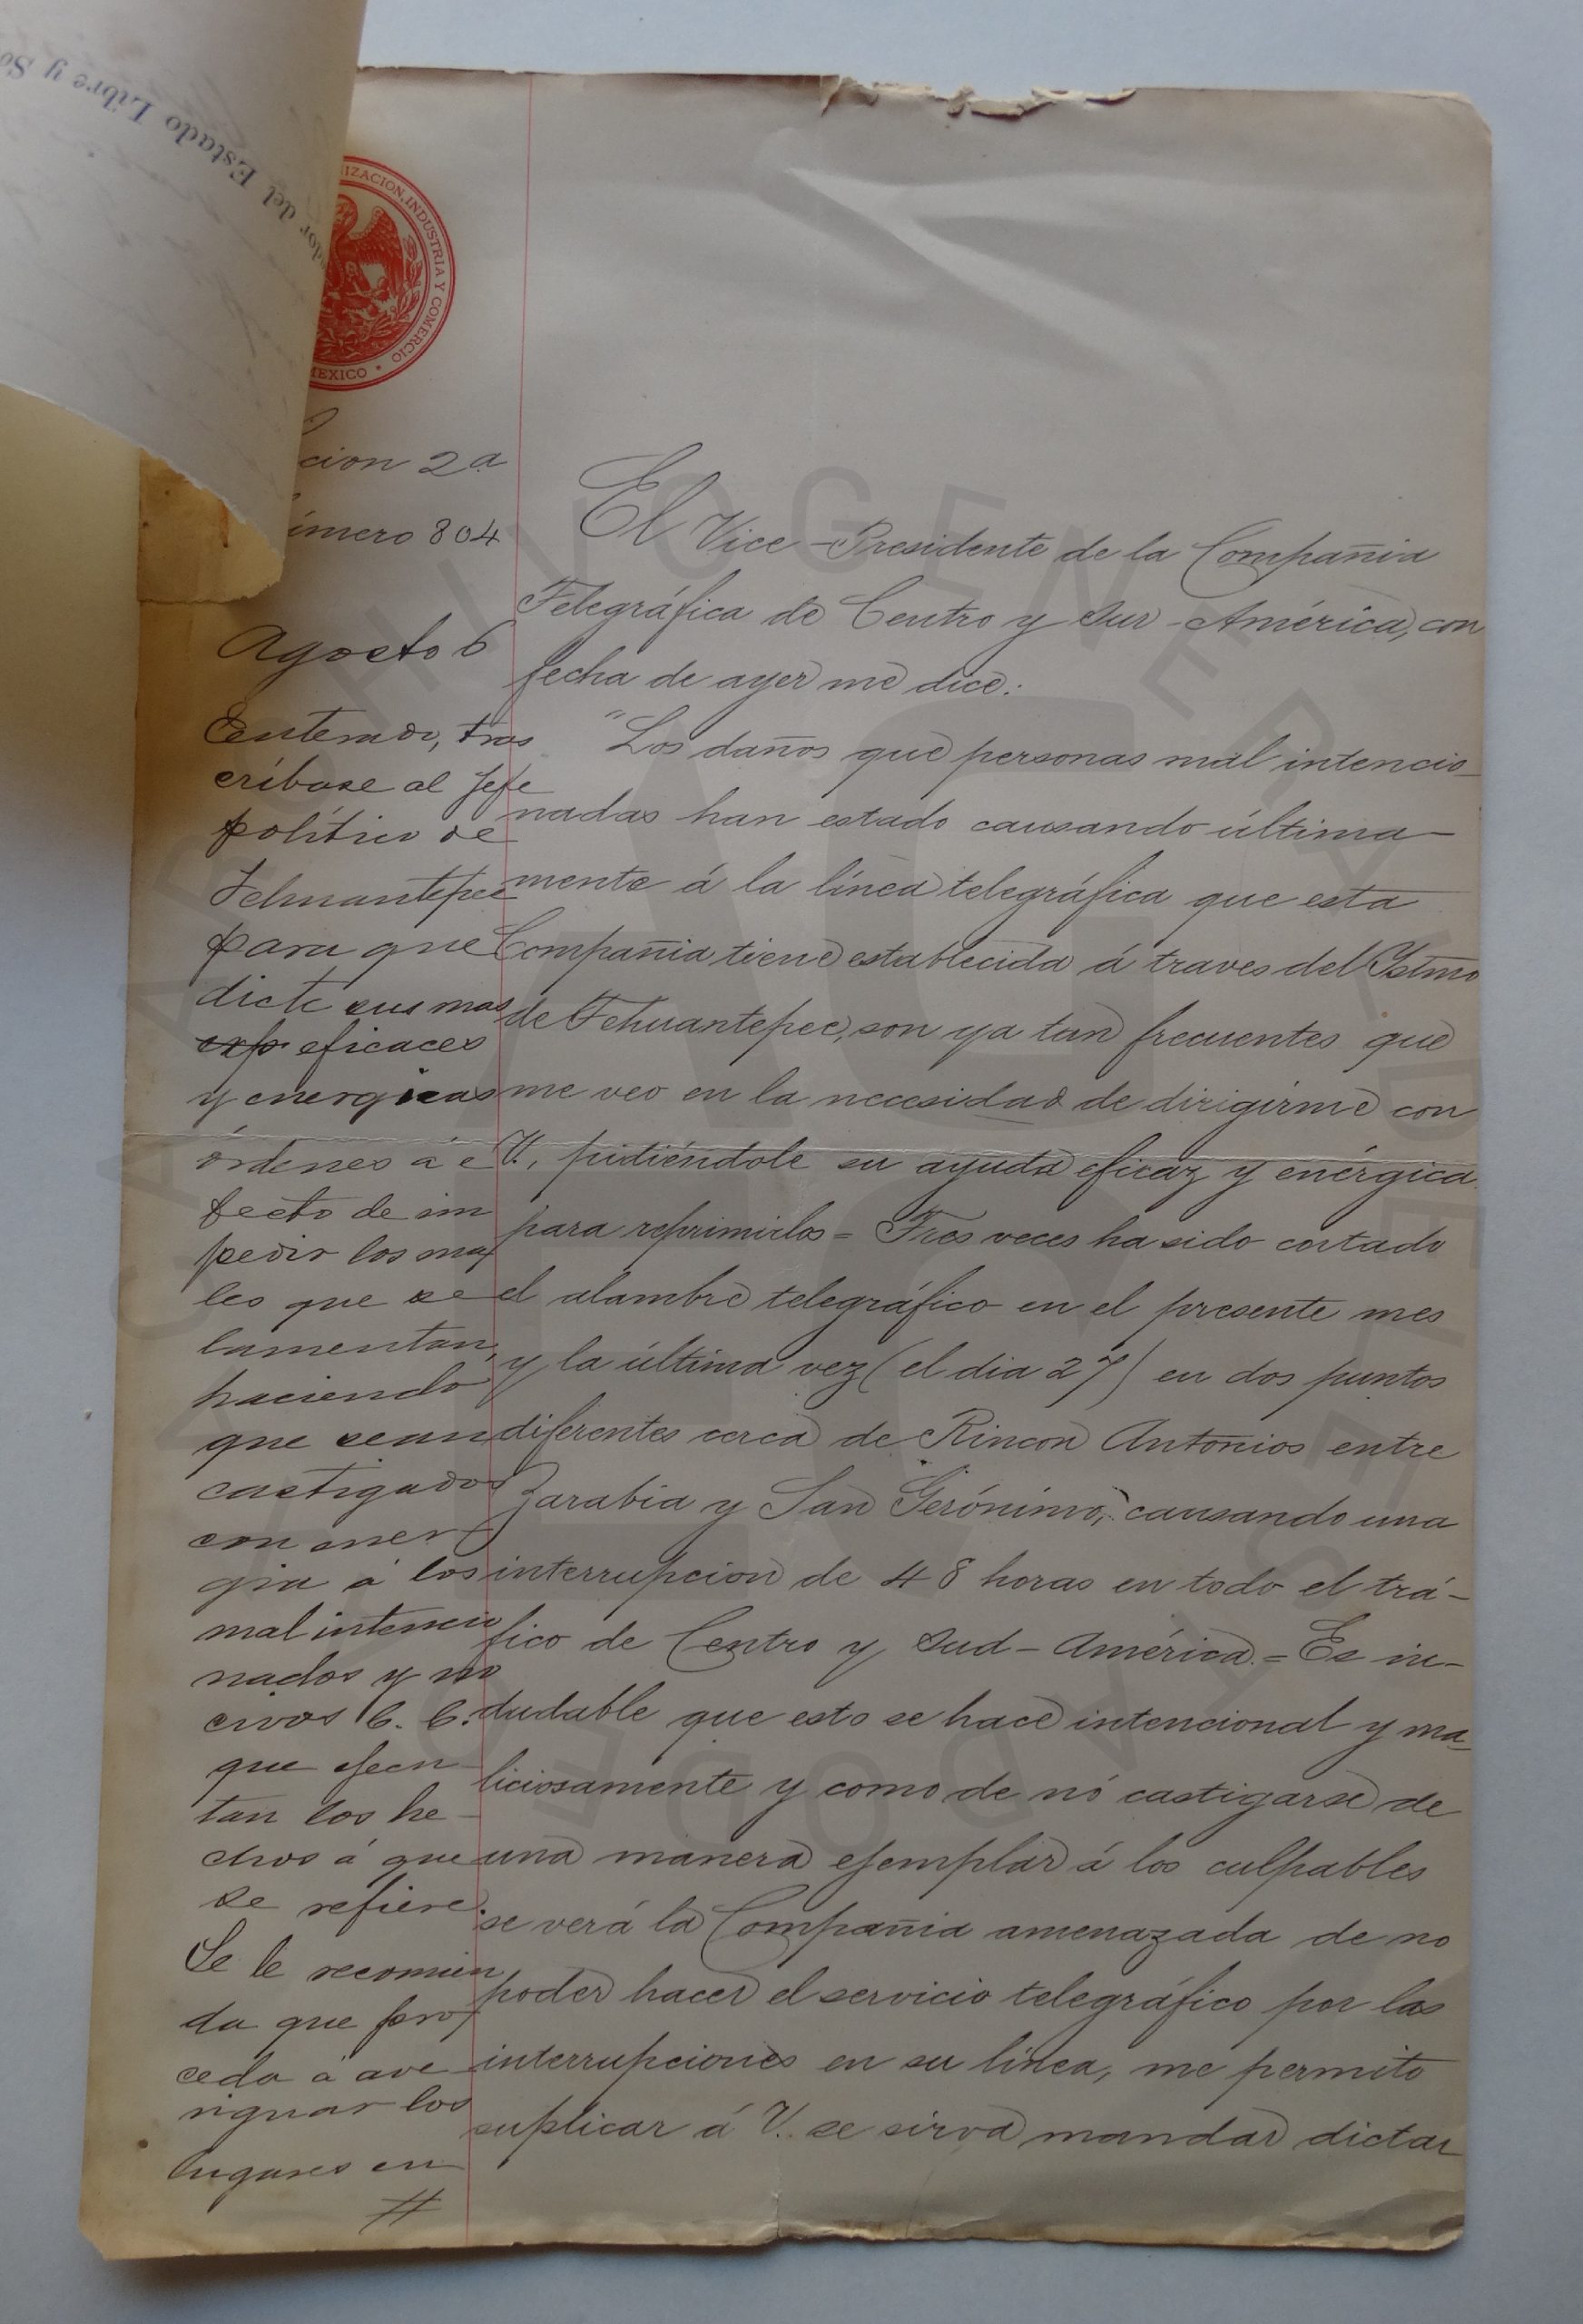 dor del Estado Libre y So
IZACION, INDUSTRIA Y COMERCIO
MEXICO
cion 2a
úmero 804
Agosto 6
Enterado, tras
críbase al Jefe
político de
Tehuantepec
para que
dicte sus mas
exp eficaces
y energicas
órdenes á e
fecto de im
pedir los ma
les que se
lamentan,
haciendo
que sean
castigados
con ener
gia á los
mal intencio
nados y no
civos C. C.
que ejecu
tan los he
chos á que
se refiere.
Se le recomien
da que pro
ceda á ave
riguar los
lugares en
#
El Vice-Presidente de la Compañia
Telegráfica de Centro y Sur-América, con
fecha de ayer me dice:
"Los daños que personas mal intencio
nadas han estado causando última
mente á la línea telegráfica que esta
Compañia tiene establecida á traves del Istmo
de Tehuantepec, son ya tan frecuentes que
me veo en la necesidad de dirigirme con
V., pidiéndole su ayuda eficaz y enérgica
para reprimirlos = Tres veces ha sido cortado
el alambre telegráfico en el presente mes
y la última vez (el dia 27) en dos puntos
diferentes cerca de Rincon Antonios entre
Zarabia y San Gerónimo, causando una
interrupcion de 48 horas en todo el trá-
fico de Centro y Sud-América. = Es in-
dudable que esto se hace intencional y ma-
liciosamente y como de nó castigarse de
una manera ejemplar á los culpables
se verá la Compañia amenazada de no
poder hacer el servicio telegráfico por las
interrupciones en su línea, me permito
suplicar á V. se sirva mandar dictar